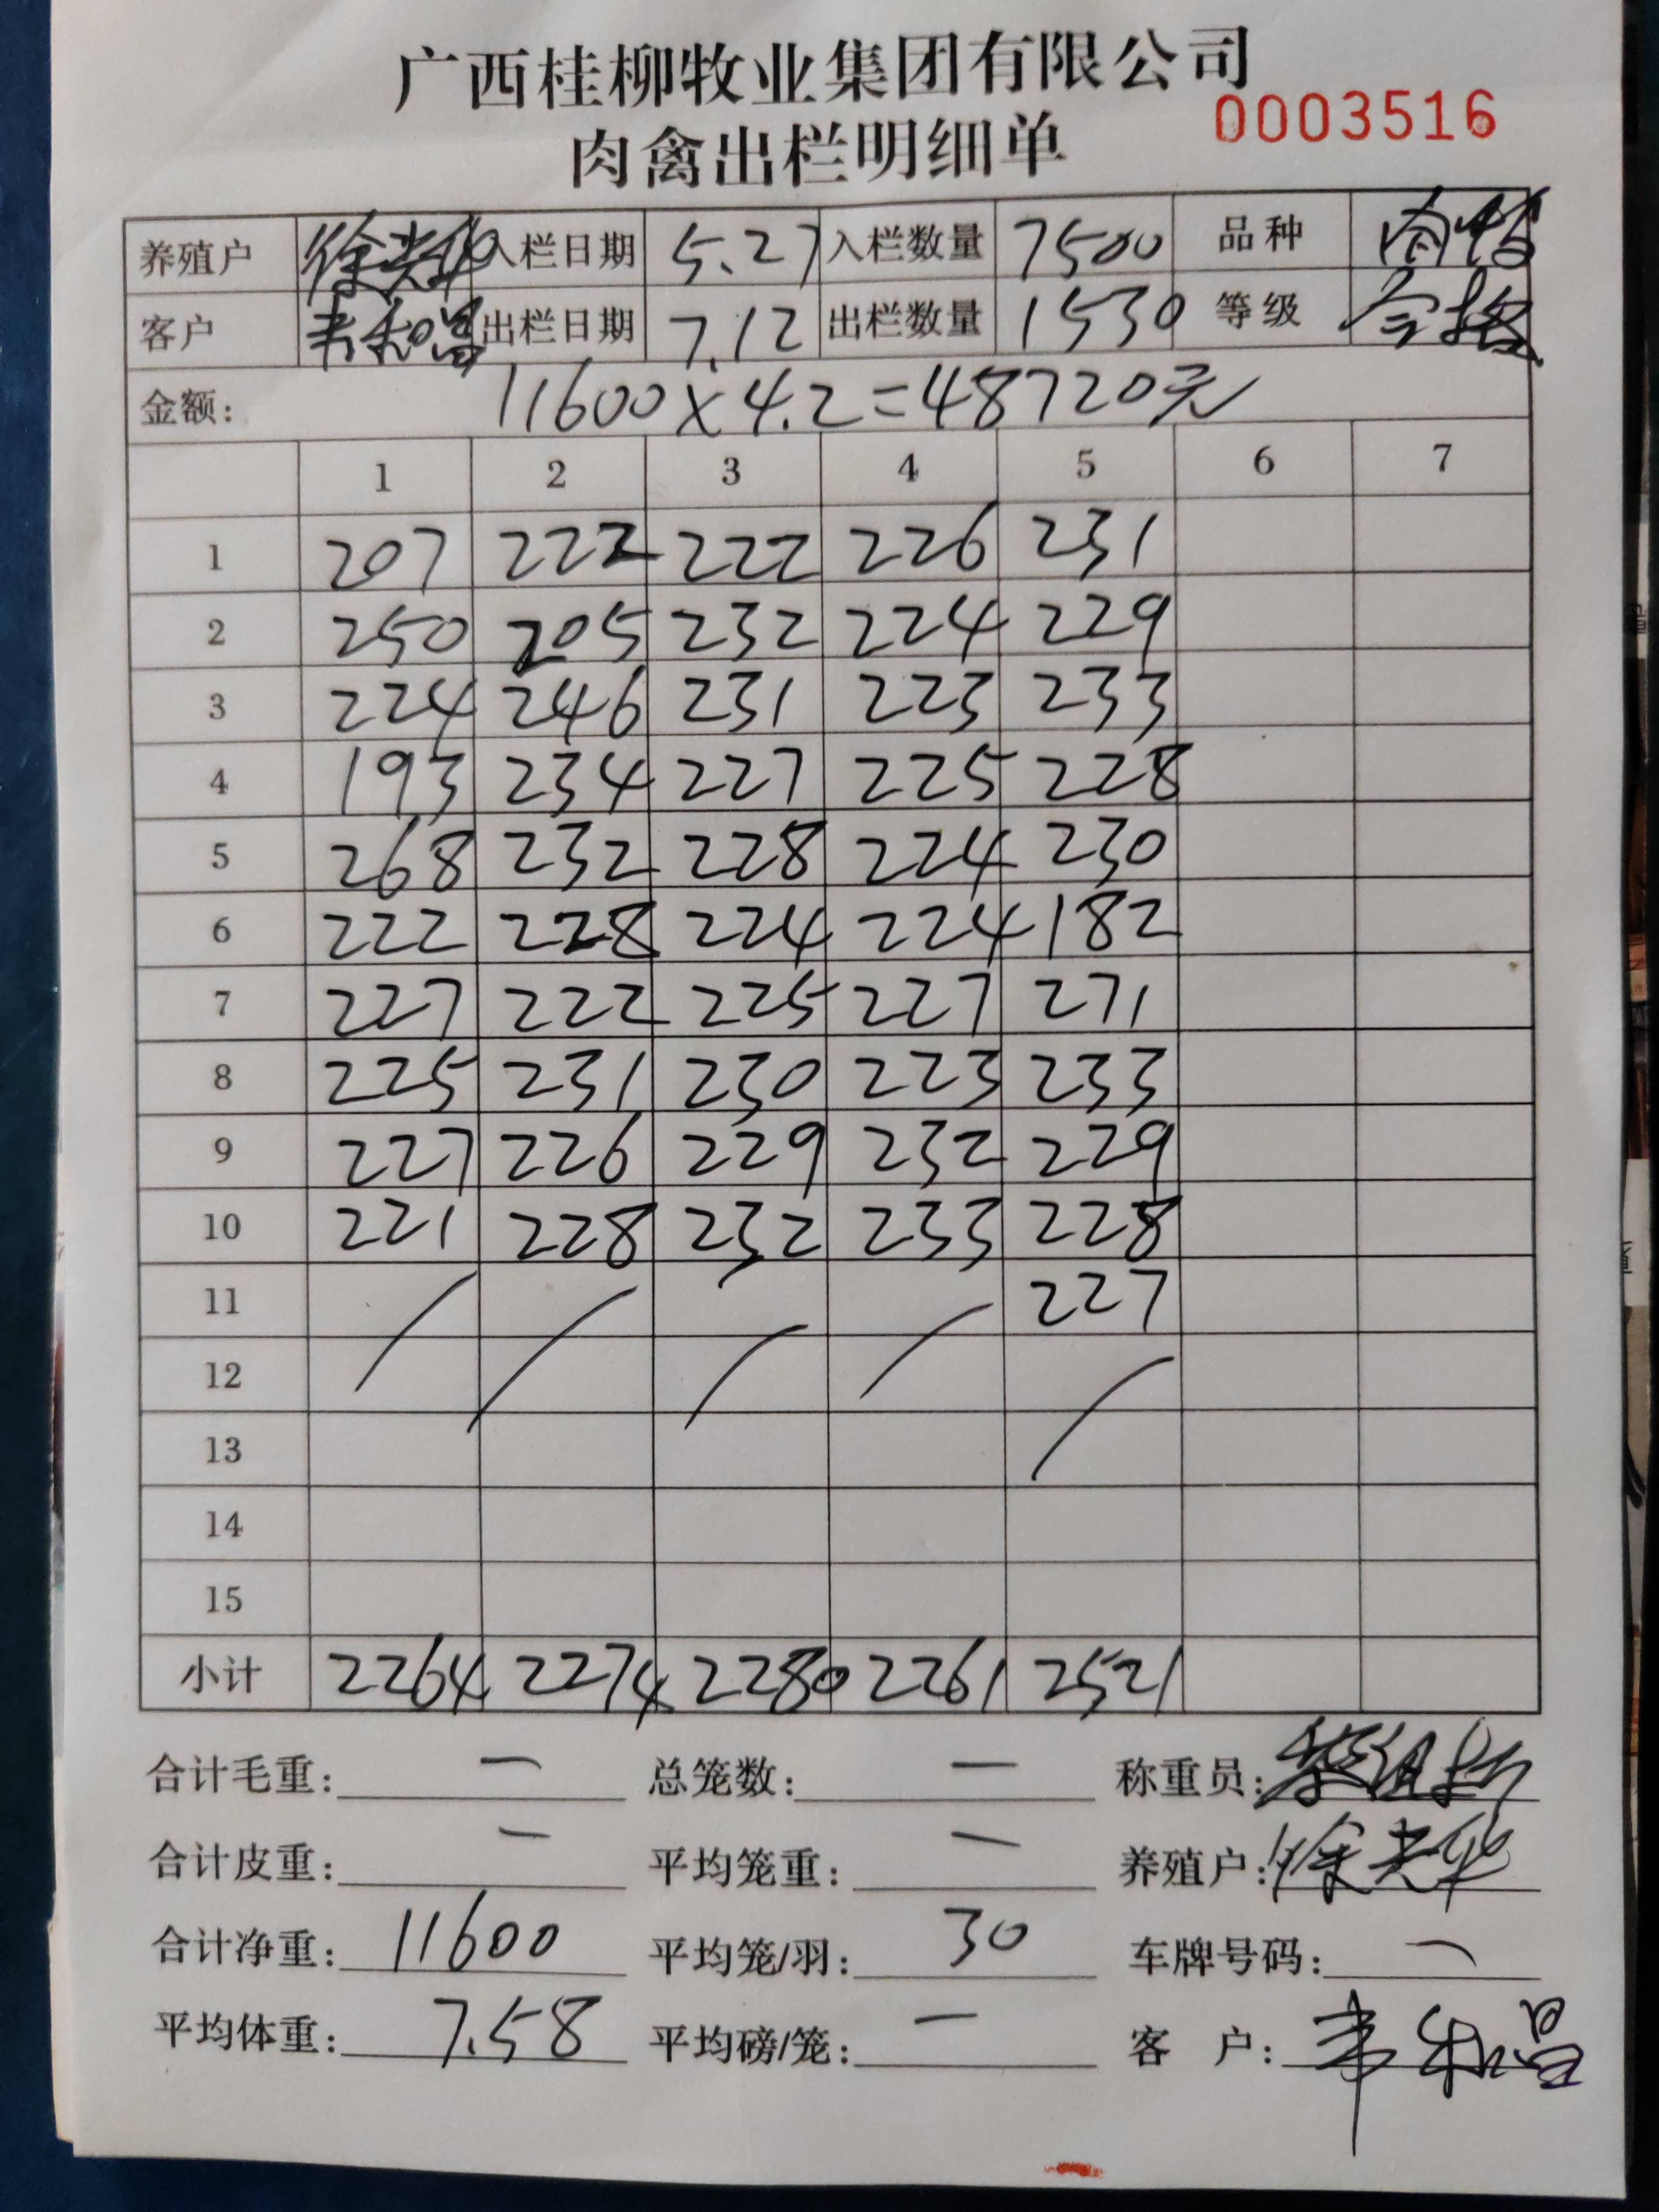 广西桂柳牧业集团有限公司
肉禽出栏明细单 0003516
养殖户 徐光华 入栏日期 5.27 入栏数量 7500 品种 肉鸭
客户 韦和昌 出栏日期 7.12 出栏数量 1530 等级 合格
金额: 11600×4.2=48720元
1 2 3 4 5 6 7
1 207 222 222 226 231
2 250 205 232 224 229
3 224 246 231 223 233
4 193 234 227 225 228
5 268 232 228 224 230
6 222 228 224 224 182
7 227 222 225 227 271
8 225 231 230 223 233
9 227 226 229 232 229
10 221 228 232 233 228
11 227
12
13
14
15
小计 2264 2274 2280 2261 2521
合计毛重: 一 总笼数: 一 称重员:
合计皮重: 一 平均笼重: 一 养殖户: 徐光华
合计净重: 11600 平均笼/羽: 30 车牌号码: 一
平均体重: 7.58 平均磅/笼: 一 客 户: 韦和昌